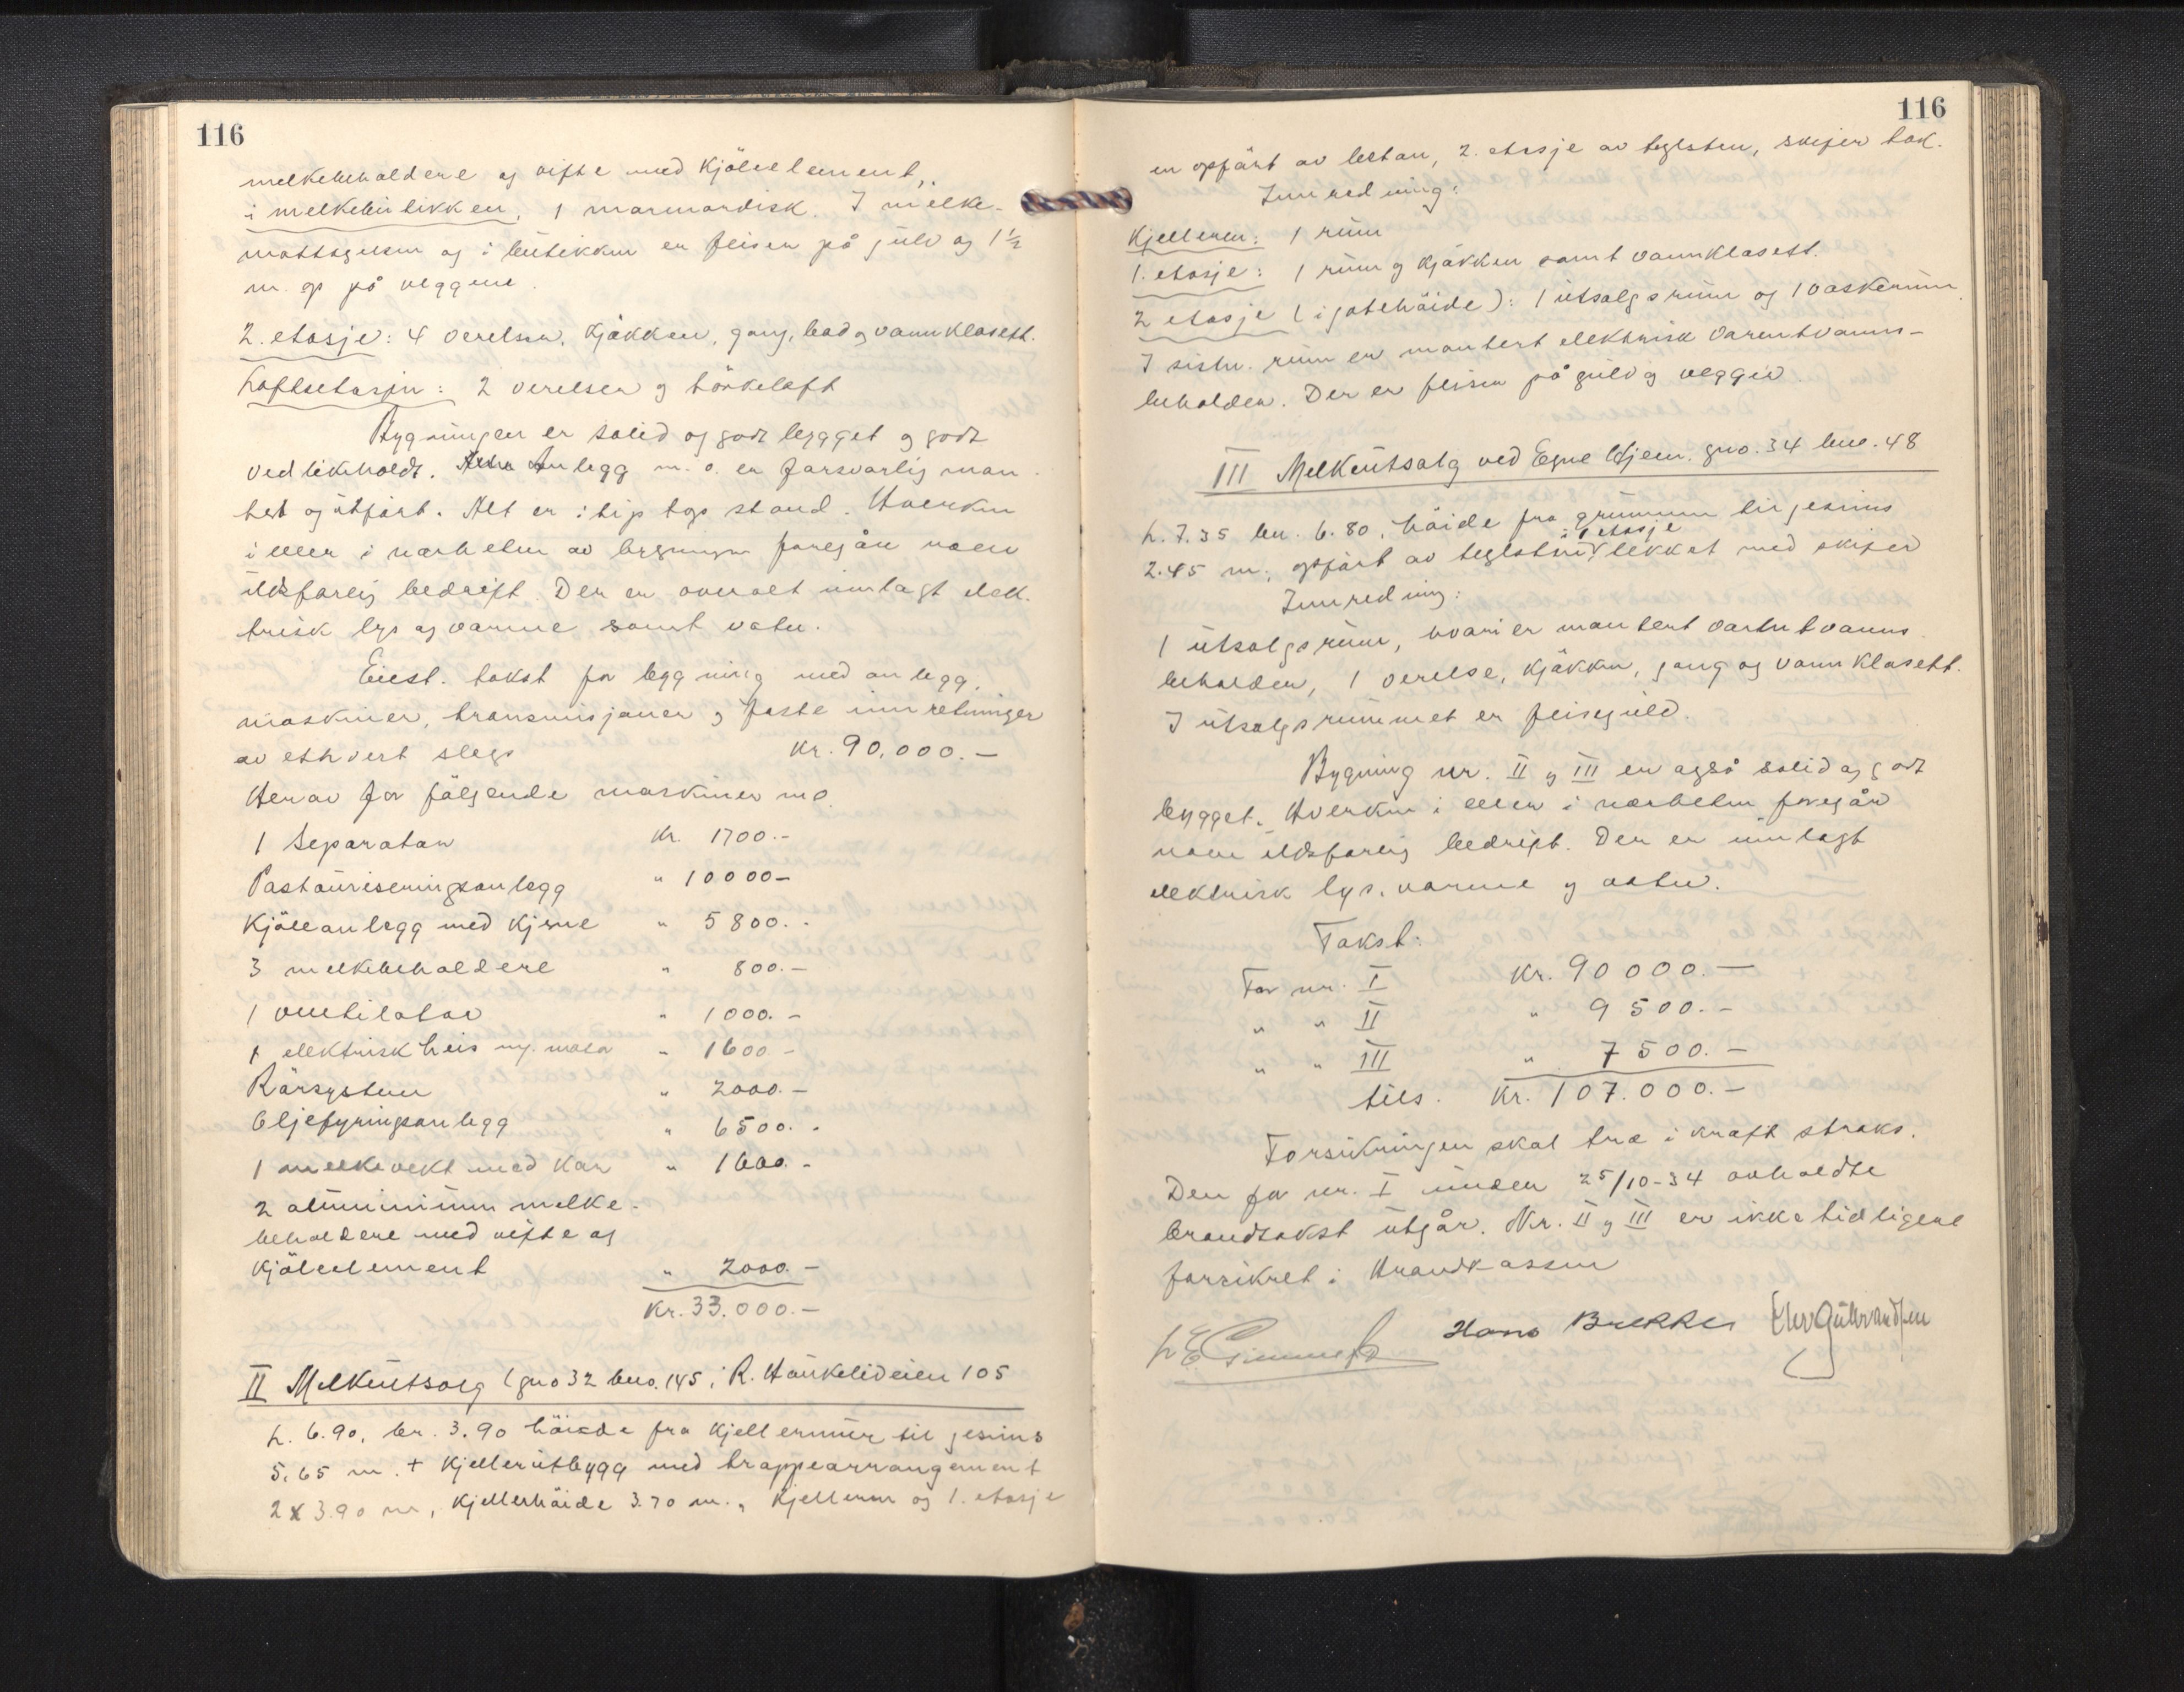 116
melkebeholdere og vifte med kjöleelement,
i melkebutikken, 1 marmordisk. I melke-
mottagelsen og i butikken er fliser på gulv og 1 1/2
m. op på veggene.
2. etasje: 4 verelser, kjökken, gang, bad og vannklosett.
Loftsetasjen: 2 verelser og törkeloft
Bygningen er solid og godt bygget og godt
vedlikeholdt. Anlegg m. v. er forsvarlig mon
tert og utfört. Alt er i tip top stand. Hverken
i eller i nærheten av bygningen foregår noen
ildsfarlig bedrift. Der er overalt innlagt elek.
trisk lys og varme samt vatn.
Eiest. takst for bygning med anlegg,
maskiner, transmisjoner og faste innretninger
av ethvert slags kr. 90,000.—
Herav for fölgende maskiner m.v.
1 Separator kr. 1700.-
Pastöuriseringsanlegg " 10000-
Kjöleanlegg med kjerne " 5800.-
3 melkebeholdere " 800.-
1 ventilator " 1000.-
1 elektrisk heis og motor " 1600-
Rörsystem " 2000.-
Oljefyringsanlegg " 6500.-
1 melkevekt med kar " 1600.-
2 aluminium melke-
beholdere med vifte og
kjöleelement " 2000.-
Kr. 33.000.-
II Melkeutsalg (gno 32 bno. 145, R. Haukelidveien 105
L. 6.90, br. 3.90 höide fra kjellermur til gesims
5.65 m. + kjellerutbygg med trappearrangement
2 x 3.90 m, kjellerhöide 3.70 m., kjelleren og 1. etasje
116
en opfört av betong, 2. etasje av teglsten, skifer tak.
Innredning:
Kjelleren: 1 rum
1. etasje: 1 rum og kjökken samt vannklosett.
2 etasje (i gatehöide): 1 utsalgsrum og 1 vaskerum
I sistn. rum er montert elektrisk varmtvanns-
beholder. Der er fliser på gulv og vegger.
III Melkeutsalg ved Egne Hjem. gno. 34 bno. 48
L. 7.35 br. 6.80, höide fra grunnmur til gesims
2.45 m, opfört av teglsten i 1 etasje tekket med skifer
Innredning:
1 utsalgsrum, hvori er montert varmtvanns
beholder, 1 verelse, kjökken, gang og vannklosett.
I utsalgsrummet er flisegulv.
Bygning nr. II og III er også solid og godt
bygget. Hverken i eller i nærheten foregår
noen ildsfarlig bedrift. Der er innlagt
elektrisk lys, varme og vatn.
Takst:
For nr. I Kr. 90000.—
" " II " 9500.-
" " III " 7500.-
tils. Kr. 107.000.-
Forsikringen skal træ i kraft straks.
Den for nr. I under 25/10-34 avholdte
brandtakst utgår. Nr. II og III er ikke tidligere
forsikret i Brandkassen
Hans Brekke